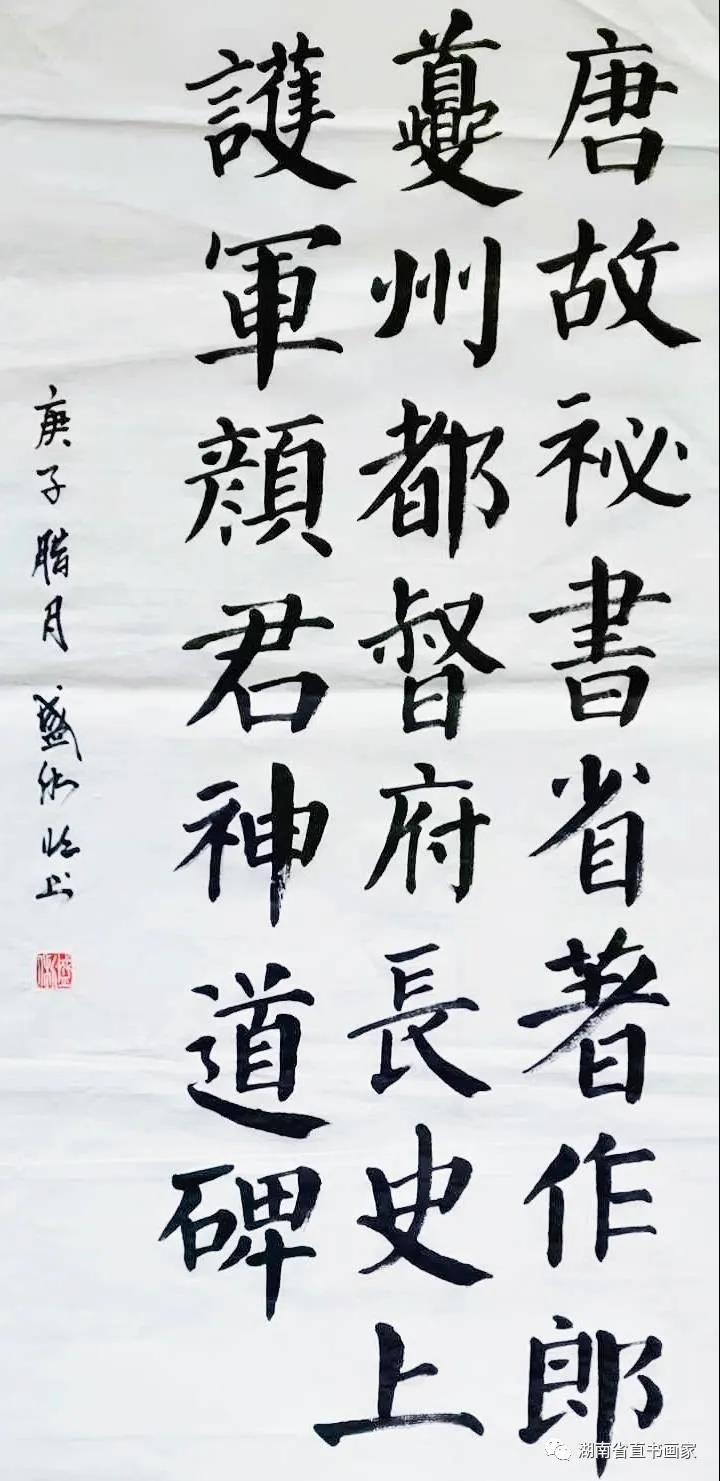 唐故祕書省著作郎
夔州都督府長史上
護軍顏君神道碑
庚子腊月盛
湖南省直书画家